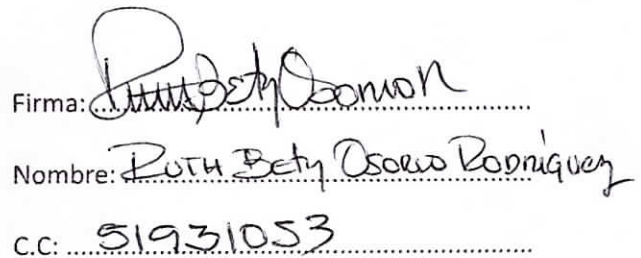 Firma: Ruth Bety Osorio R
Nombre: Ruth Bety Osorio Rodríguez
C.C: 51931053